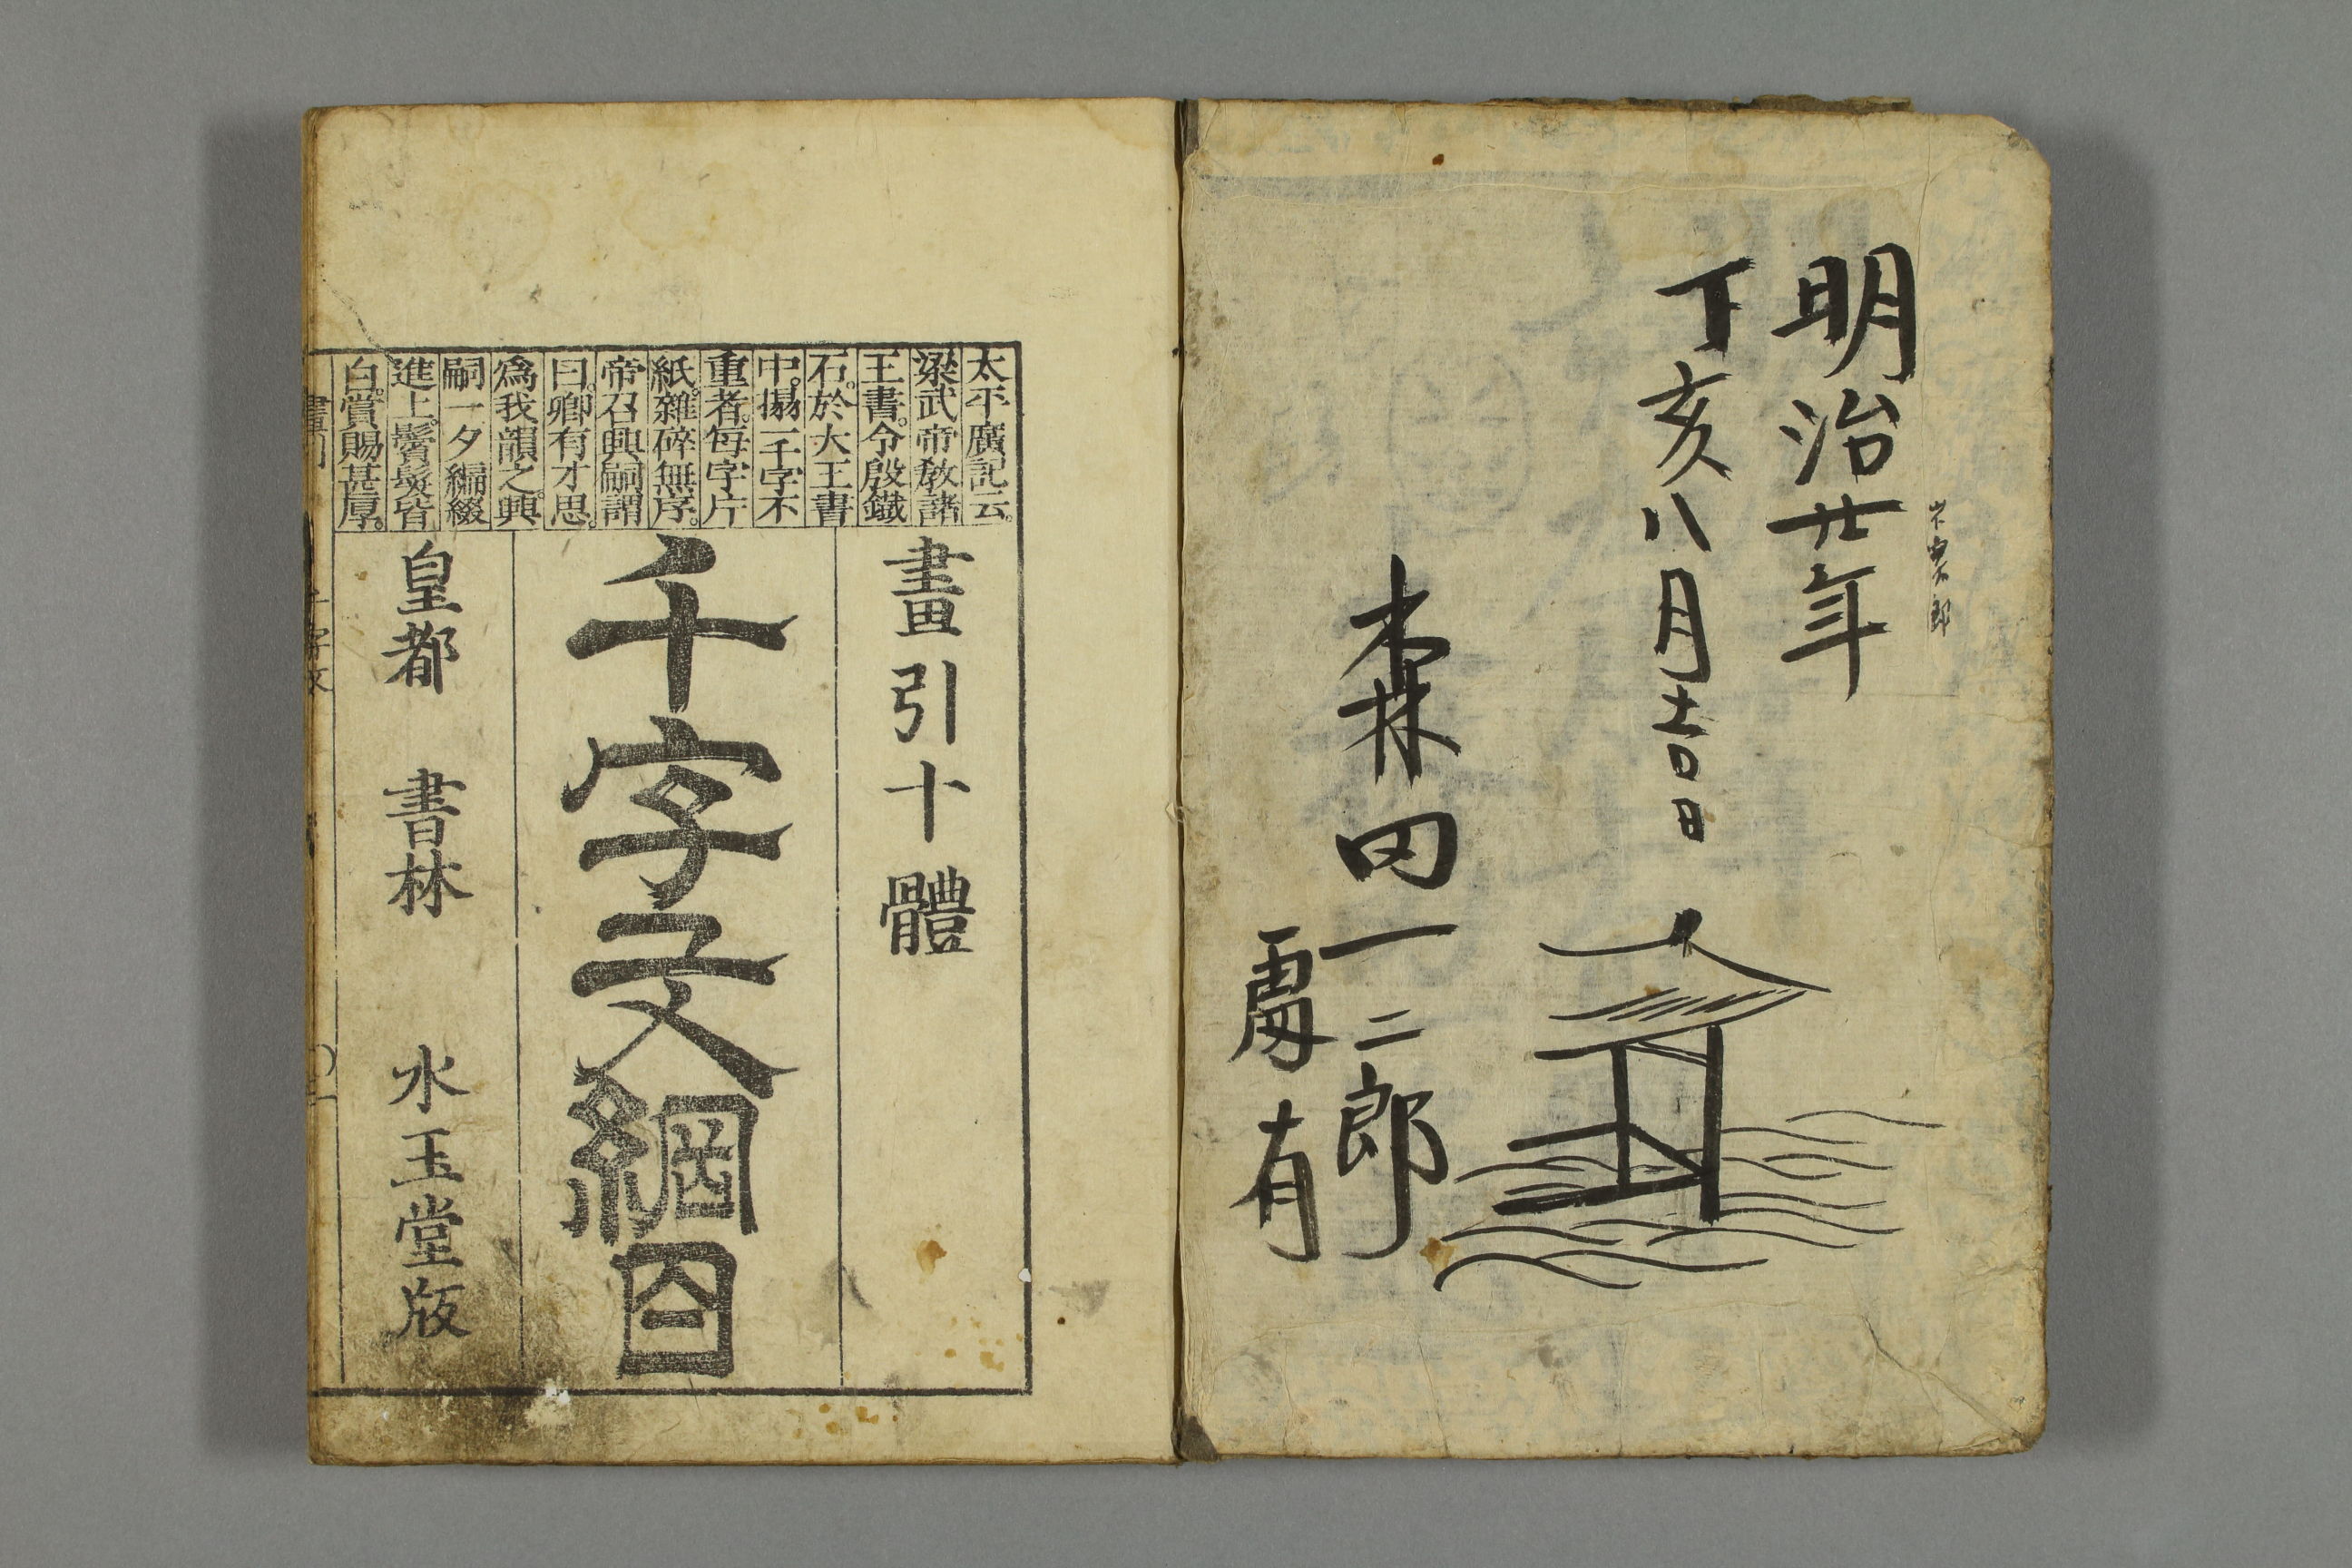 明治廿年
丁亥八月吉日
森田一二郎
有
太平廣記云。
梁武帝教諸
王書。令殷鐵
石。於大王書
中。搨一千字不
重者。每字片
紙。雜碎無序。
帝召興嗣謂
曰。卿有才思。
爲我韻之。興
嗣一夕編綴
進上。鬢髮皆
白。賞賜甚厚。
畫引十體
千字文綱目
皇都 書林 水玉堂版
畫引 千字文